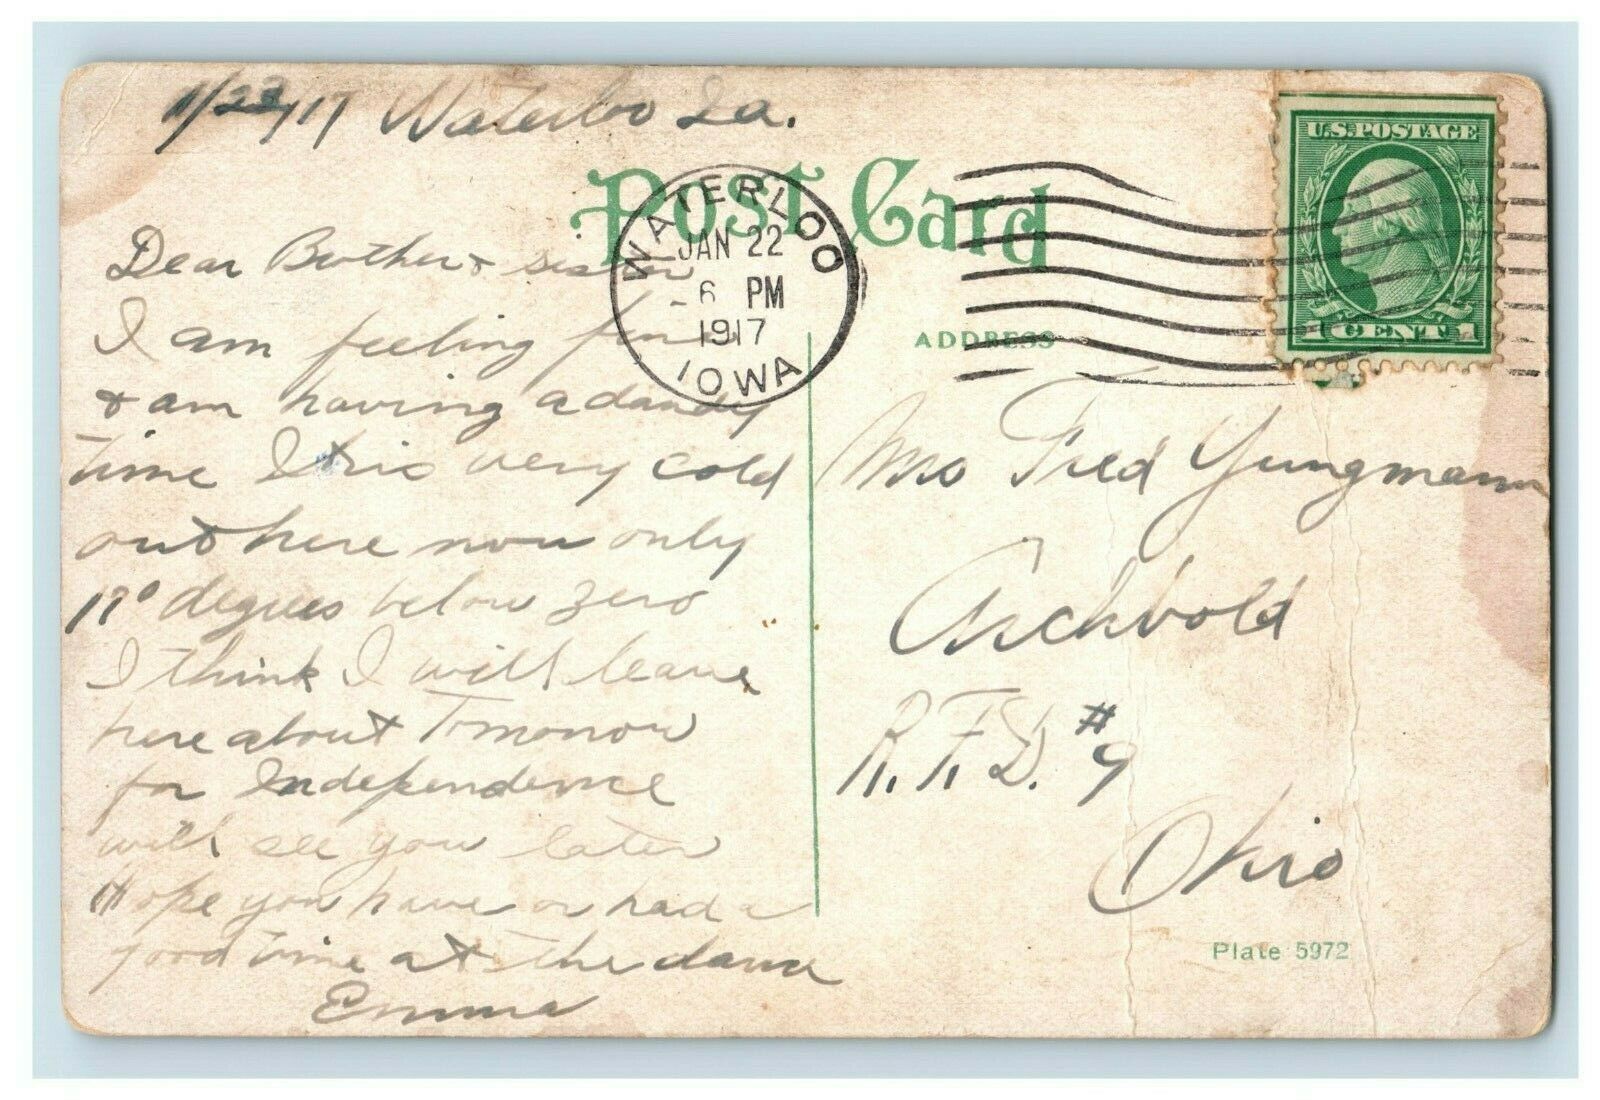 1/22/17 Waterloo Ia.
POST Card
WATERLOO
JAN 22
6 PM
1917
IOWA
U.S. POSTAGE
1 CENT 1
ADDRESS
Dear Brother & Sister
I am feeling fine
& am having a dandy
time It is very cold
out here now only
17° degrees below zero
I think I will leave
here about Tomorrow
for Independence
will see you later
Hope you have or had a
good time at the dance
Emma
Mrs Fred Yungmann
Archbold
R.F.D. #9
Ohio
Plate 5972